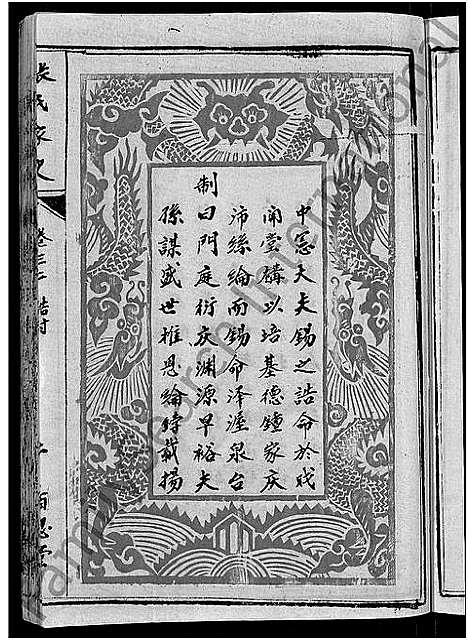 中憲大夫錫之誥命於戲
開堂構以培基德鍾家慶
沛絲綸而錫命澤渥泉台
制曰門庭衍慶淵源早裕夫
孫謀盛世推恩綸綍載揚
長氏家乘
卷三 誥封
百忍堂